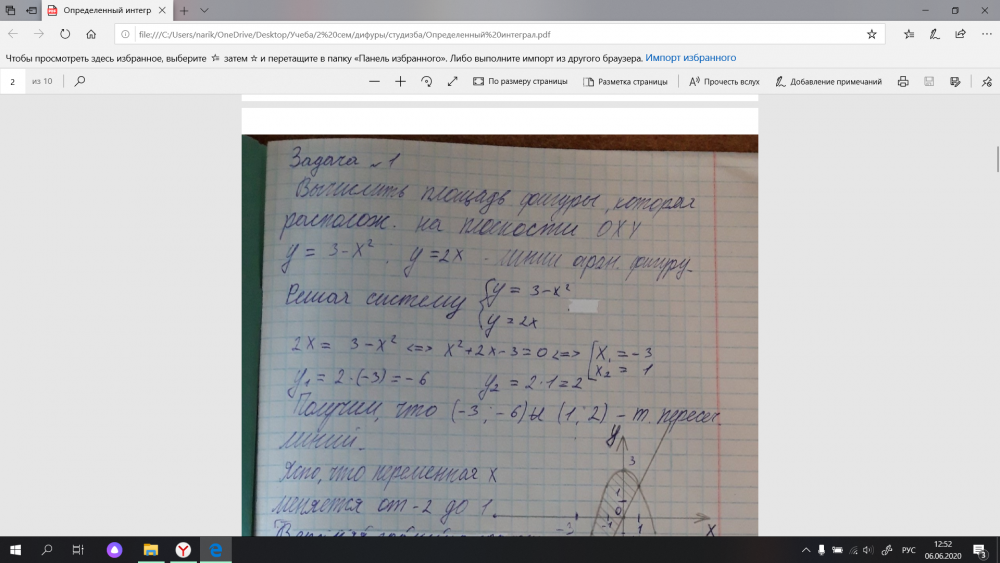 Определенный интегр
file:///C:/Users/narik/OneDrive/Desktop/Учеба/2%20сем/дифуры/студизба/Определенный%20интеграл.pdf
Чтобы просмотреть здесь избранное, выберите затем и перетащите в папку «Панель избранного». Либо выполните импорт из другого браузера. Импорт избранного
2 из 10 По размеру страницы Разметка страницы Прочесть вслух Добавление примечаний
Задача №1
Вычислить площадь фигуры, которая
располож. на плоскости OXY
y = 3-x²; y = 2x - линии огран. фигуру.
Решая систему { y = 3-x²
y = 2x
2x = 3-x² <=> x²+2x-3=0 <=> [ x₁ = -3
x₂ = 1
y₁ = 2·(-3) = -6 y₂ = 2·1 = 2
Получим, что (-3; -6) и (1; 2) - т. пересеч.
линий.
y
3
Ясно, что переменная x
1
меняется от -2 до 1.
0
-3 -1 1 x
РУС
12:52
06.06.2020
3